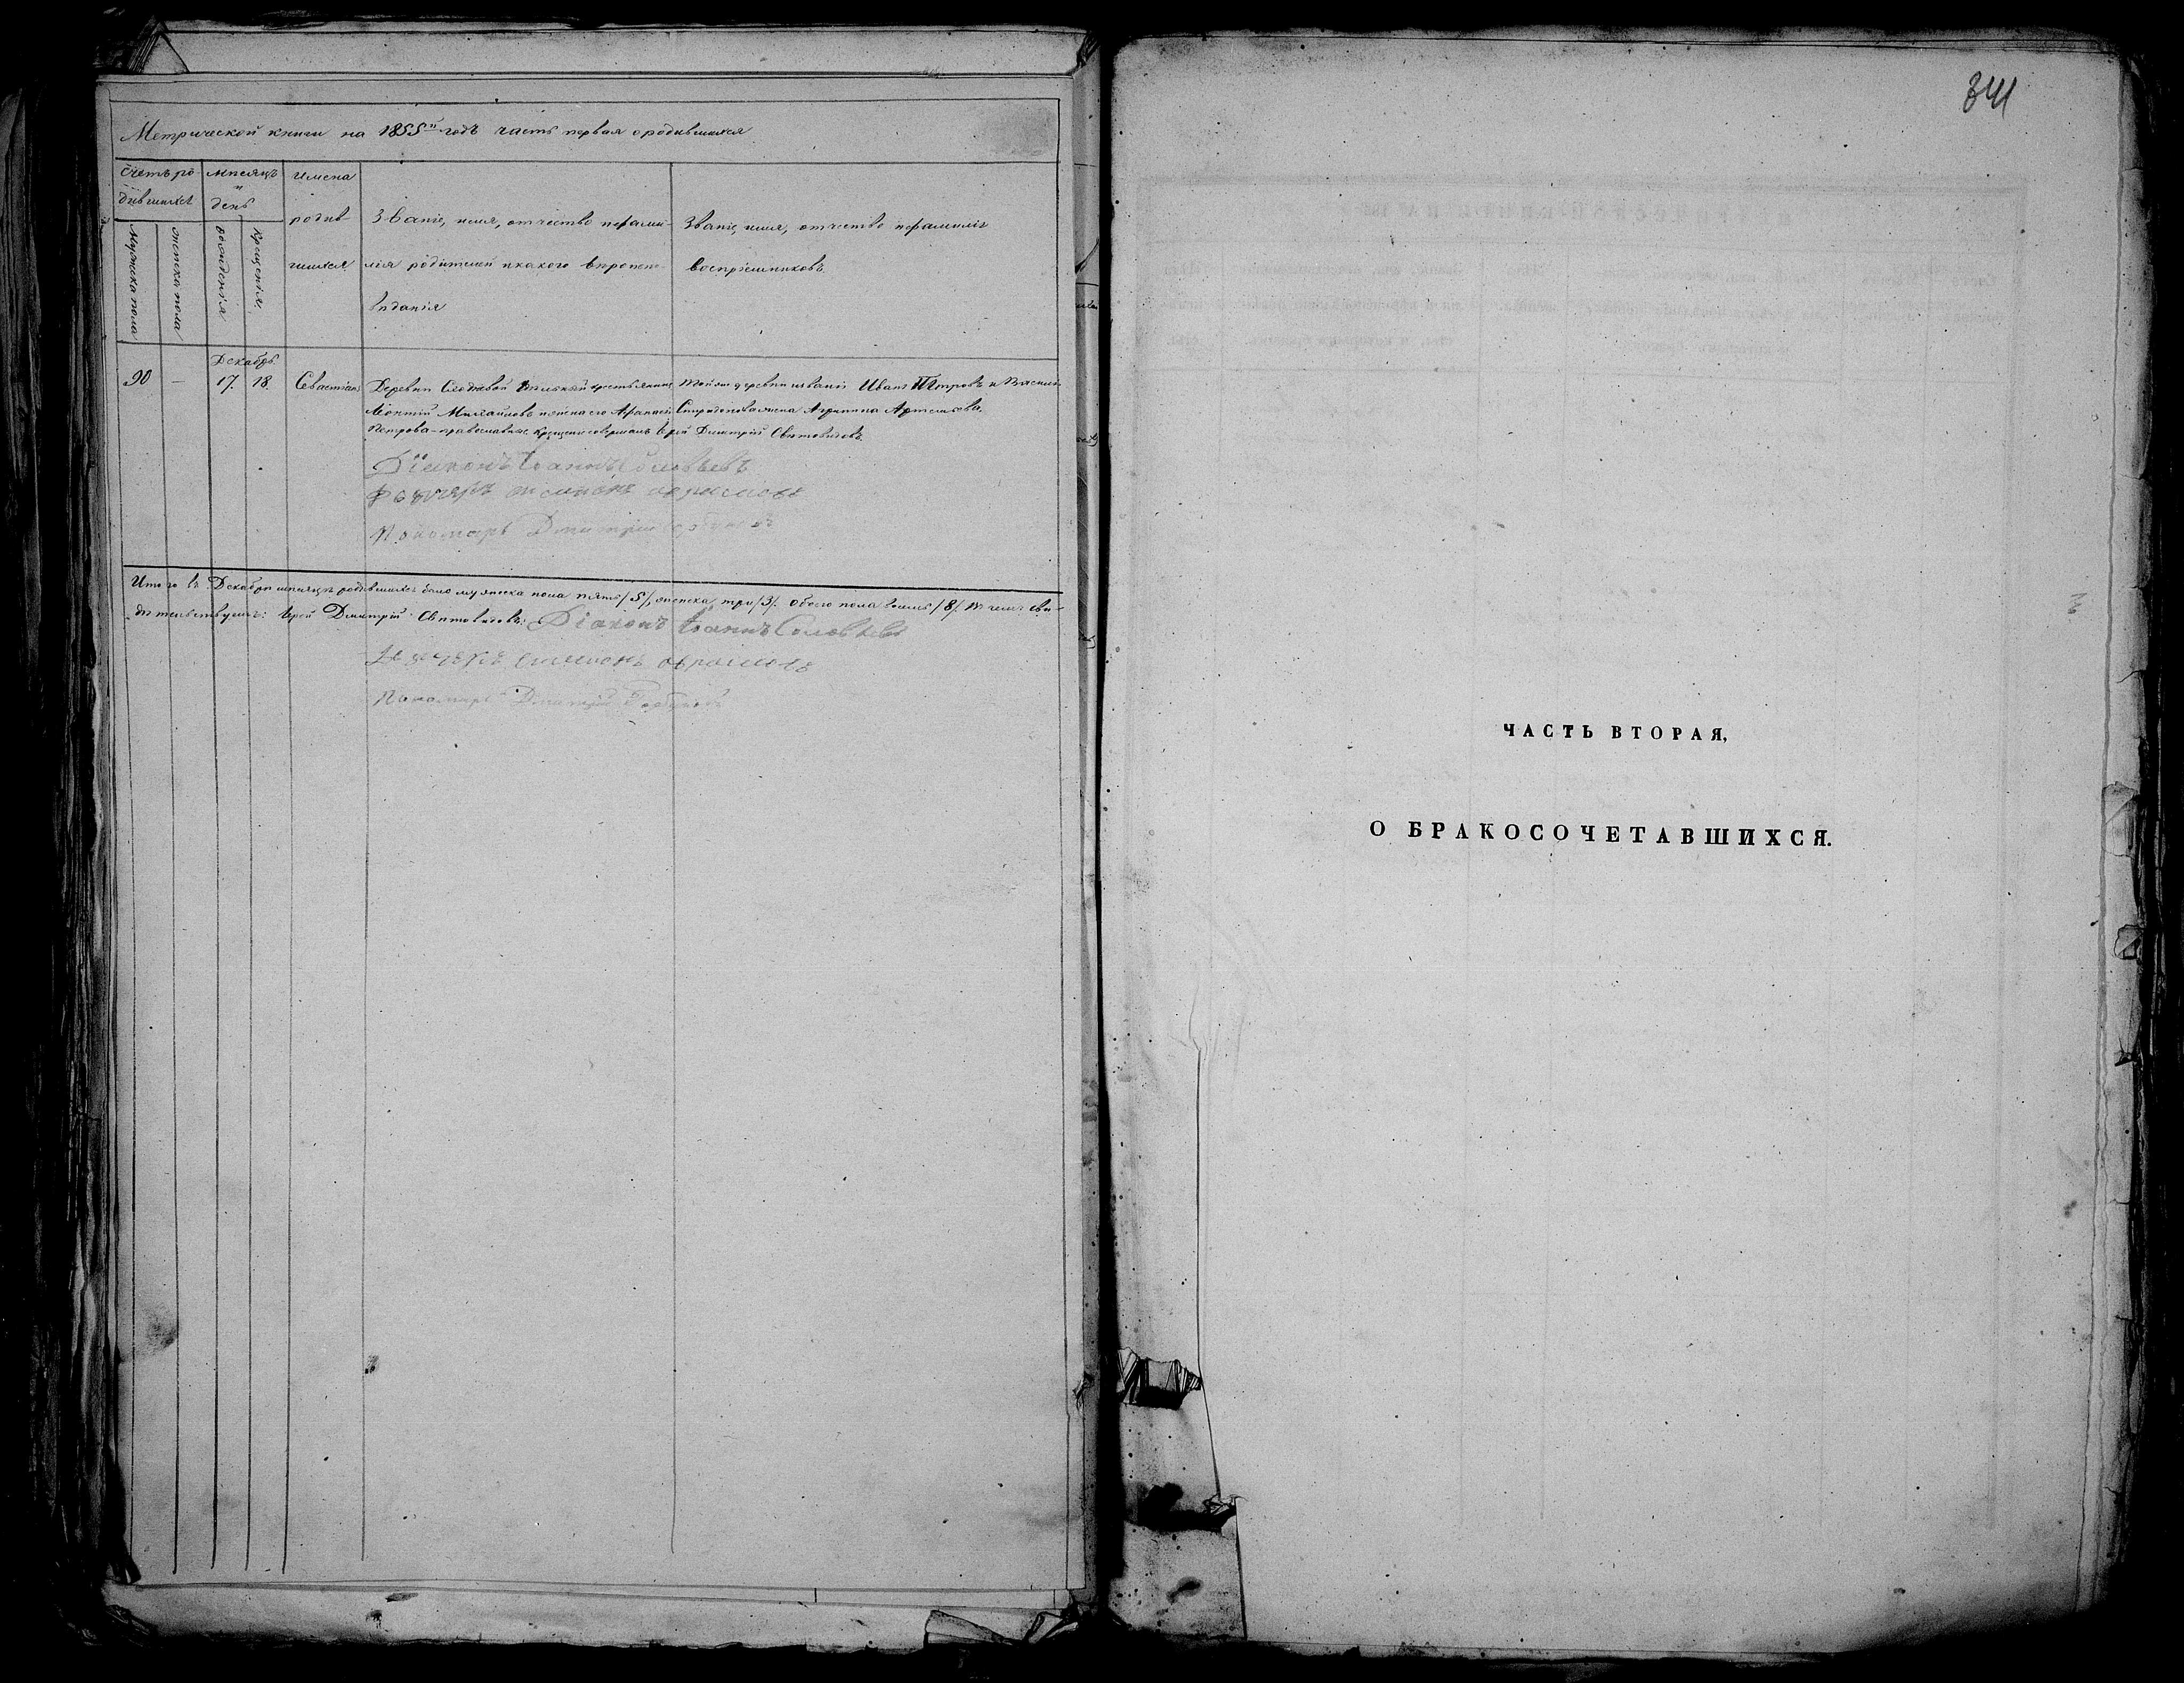 Метрической книги на 1855й годъ часть первая о родившихся
Счетъ ро-
дившихся
Мужеска пола
женска пола
мѣсяцъ
и
день
рожденія
Крещенія
имена
родив-
шихся
Званіе, имя, отчество и фами-
лія родителей и какого вѣроиспо-
вѣданія
Званіе, имя, отчество и фамилія
воспріемниковъ
Декабрь
90 — 17. 18. Севастіанъ
Деревни крестьянинъ
Леонтій Михайловъ и жена его
Петрова православные. Крещеніе совершалъ Іерей Димитрій
Той же деревни Иванъ Петровъ и
жена Агрипина Артемьева.
Діаконъ Іоаннъ Соловьевъ
Пономарь Дмитрій
Итого въ Декабрѣ мѣсяцѣ родившихся было мужеска пола пять /5/, женска три /3/. обоего пола восемь /8/. Въ чемъ сви-
дѣтельствуемъ: Іерей Димитрій Діаконъ Іоаннъ Соловьевъ
Пономарь Дмитрій
341
ЧАСТЬ ВТОРАЯ,
О БРАКОСОЧЕТАВШИХСЯ.